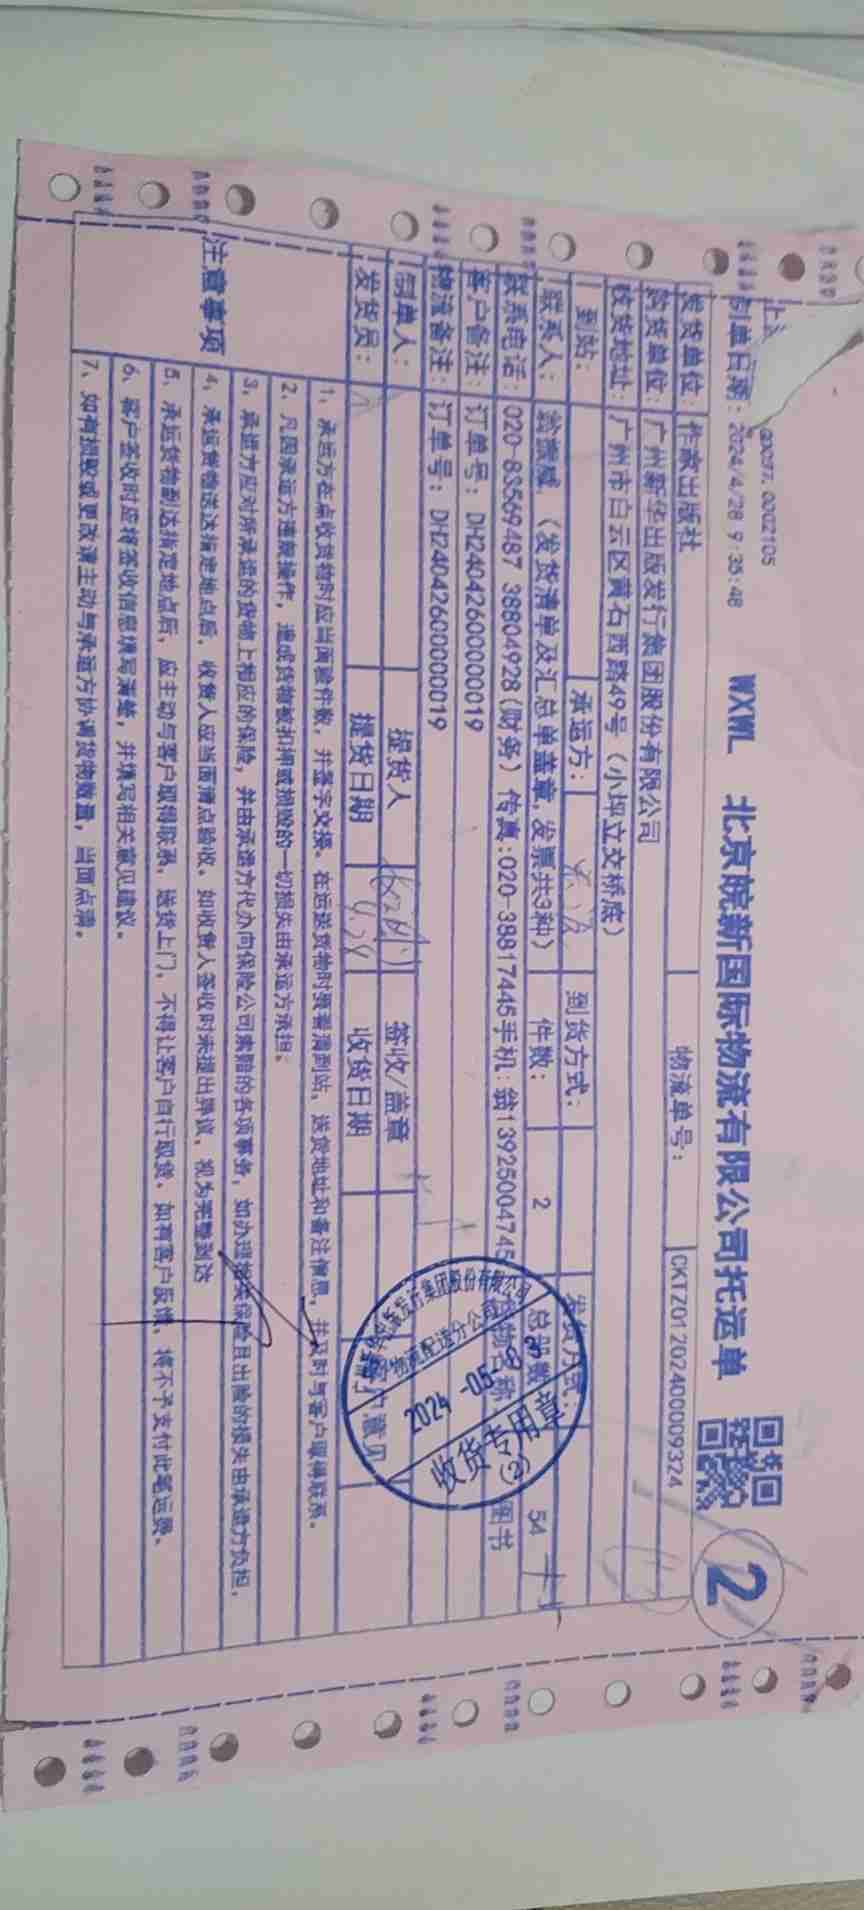 0097.0002105
制单日期：2024/4/28 9:35:48 WXWL 北京皖新国际物流有限公司托运单 2
发货单位：作家出版社 物流单号：CKTZ01202400009324
收货单位：广州新华出版发行集团股份有限公司
收货地址：广州市白云区黄石西路49号（小坪立交桥底）
到站： 承运方： 到货方式： 发货方式：
联系人： （发货清单及汇总单盖章，发票共3种） 件数： 2 总册数 54
联系电话：020-83569487 38804928(财务）传真：020-38817445手机：翁13925004745 图书
客户备注：订单号：DH240426000000019
物流备注：订单号：DH240426000000019
制单人： 提货人 签收/盖章 客户意见
发货员： 提货日期 收货日期
注意事项
1、承运方在点收货物时应当面验件数，并签字交接。在运送货物时须看清到站、送货地址和备注信息，并及时与客户取得联系。
2、凡因承运方违规操作，造成货物被扣押或损毁的一切损失由承运方承担。
3、承运方应对所承运的货物上相应的保险，并由承运方代办向保险公司索赔的各项事务，如办理相关保险且出险的损失由承运方负担。
4、承运货物送达指定地点后，收货人应当面清点验收。如收货人签收时未提出异议，视为完整到达
5、承运货物到达指定地点后，应主动与客户取得联系，送货上门，不得让客户自行取货。如有客户反馈，将不予支付此笔运费。
6、客户签收时应将签收信息填写清楚，并填写相关意见建议。
7、如有损毁或更改请主动与承运方协调货物数量，当面点清。
新华出版发行集团股份有限公司
物流配送分公司
2024-05-03
收货专用章
(2)